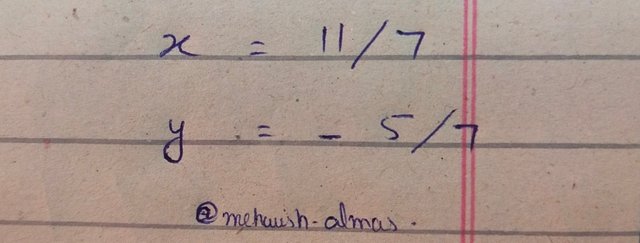 x = 11/7
y = - 5/7
@mehwish-almas.